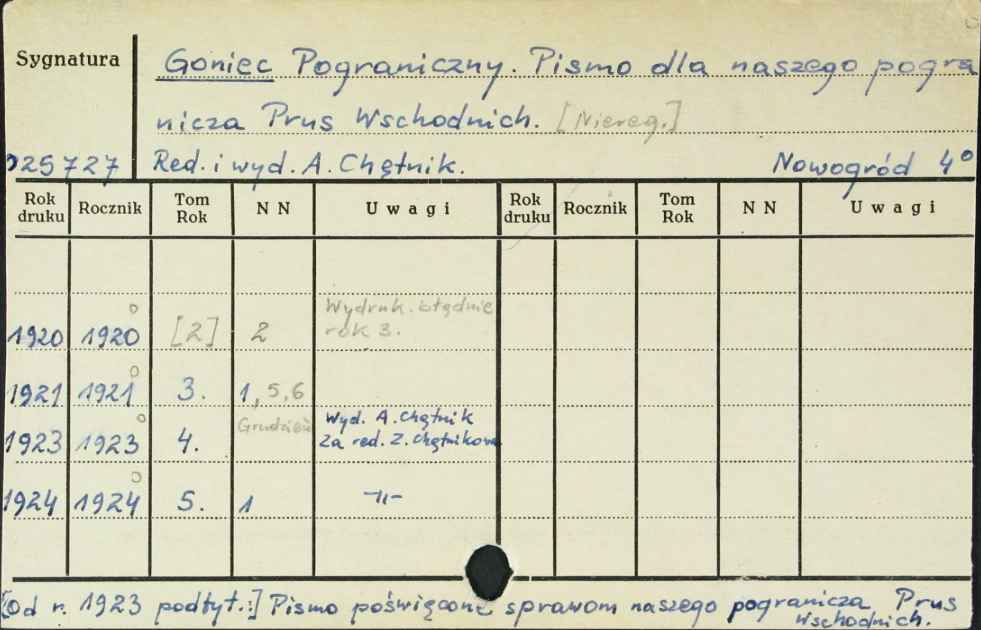 Sygnatura
Goniec Pograniczny. Pismo dla naszego pogra
nicza Prus Wschodnich. [Niereg.]
025727 Red. i wyd. A. Chętnik. Nowogród 4°
Rok druku Rocznik Tom Rok N N Uwagi Rok druku Rocznik Tom Rok N N Uwagi
Wydruk. błędnie
1920 1920 [2] 2 rok 3.
1921 1921 3. 1, 5, 6
Grudzień Wyd. A. Chętnik
1923 1923 4. Za red. Z. Chętnikowa
1924 1924 5. 1 -"-
[Od r. 1923 podtyt.:] Pismo poświęcone sprawom naszego pogranicza Prus
Wschodnich.